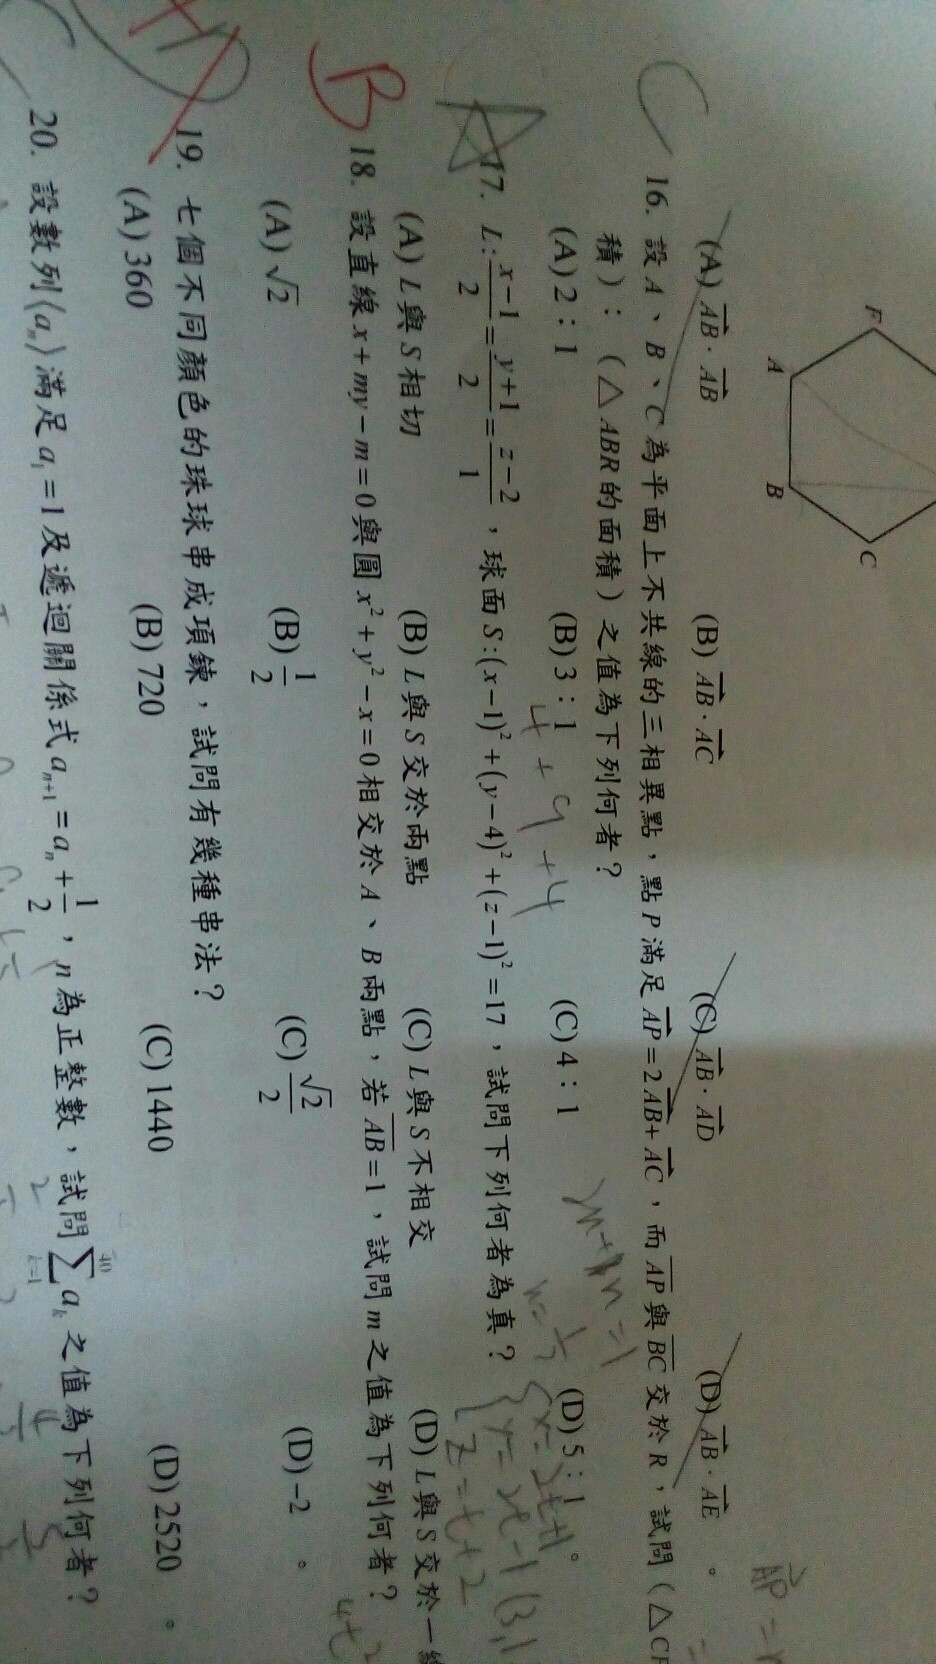 F
A
B
C
(A) AB·AB (B) AB·AC (C) AB·AD (D) AB·AE 。
AP =
C
16. 設 A、B、C 為平面上不共線的三相異點，點 P 滿足 AP=2AB+AC，而 AP 與 BC 交於 R，試問（△CP
積）：（△ABR 的面積）之值為下列何者？
(A) 2：1 (B) 3：1 (C) 4：1 (D) 5：1 。
4+9+4
17. L: (x-1)/2 = (y+1)/2 = (z-2)/1，球面 S:(x-1)²+(y-4)²+(z-1)²=17，試問下列何者為真？
x=2t+1
y=2t-1
z=t+2
(A) L 與 S 相切 (B) L 與 S 交於兩點 (C) L 與 S 不相交 (D) L 與 S 交於一
B
18. 設直線 x+my-m=0 與圓 x²+y²-x=0 相交於 A、B 兩點，若 AB=1，試問 m 之值為下列何者？
(A) √2 (B) 1/2 (C) √2/2 (D) -2 。
19. 七個不同顏色的珠球串成項鍊，試問有幾種串法？
(A) 360 (B) 720 (C) 1440 (D) 2520 。
20. 設數列⟨aₙ⟩滿足 a₁=1 及遞迴關係式 aₙ₊₁=aₙ+1/2，n 為正整數，試問 ∑aₖ 之值為下列何者？